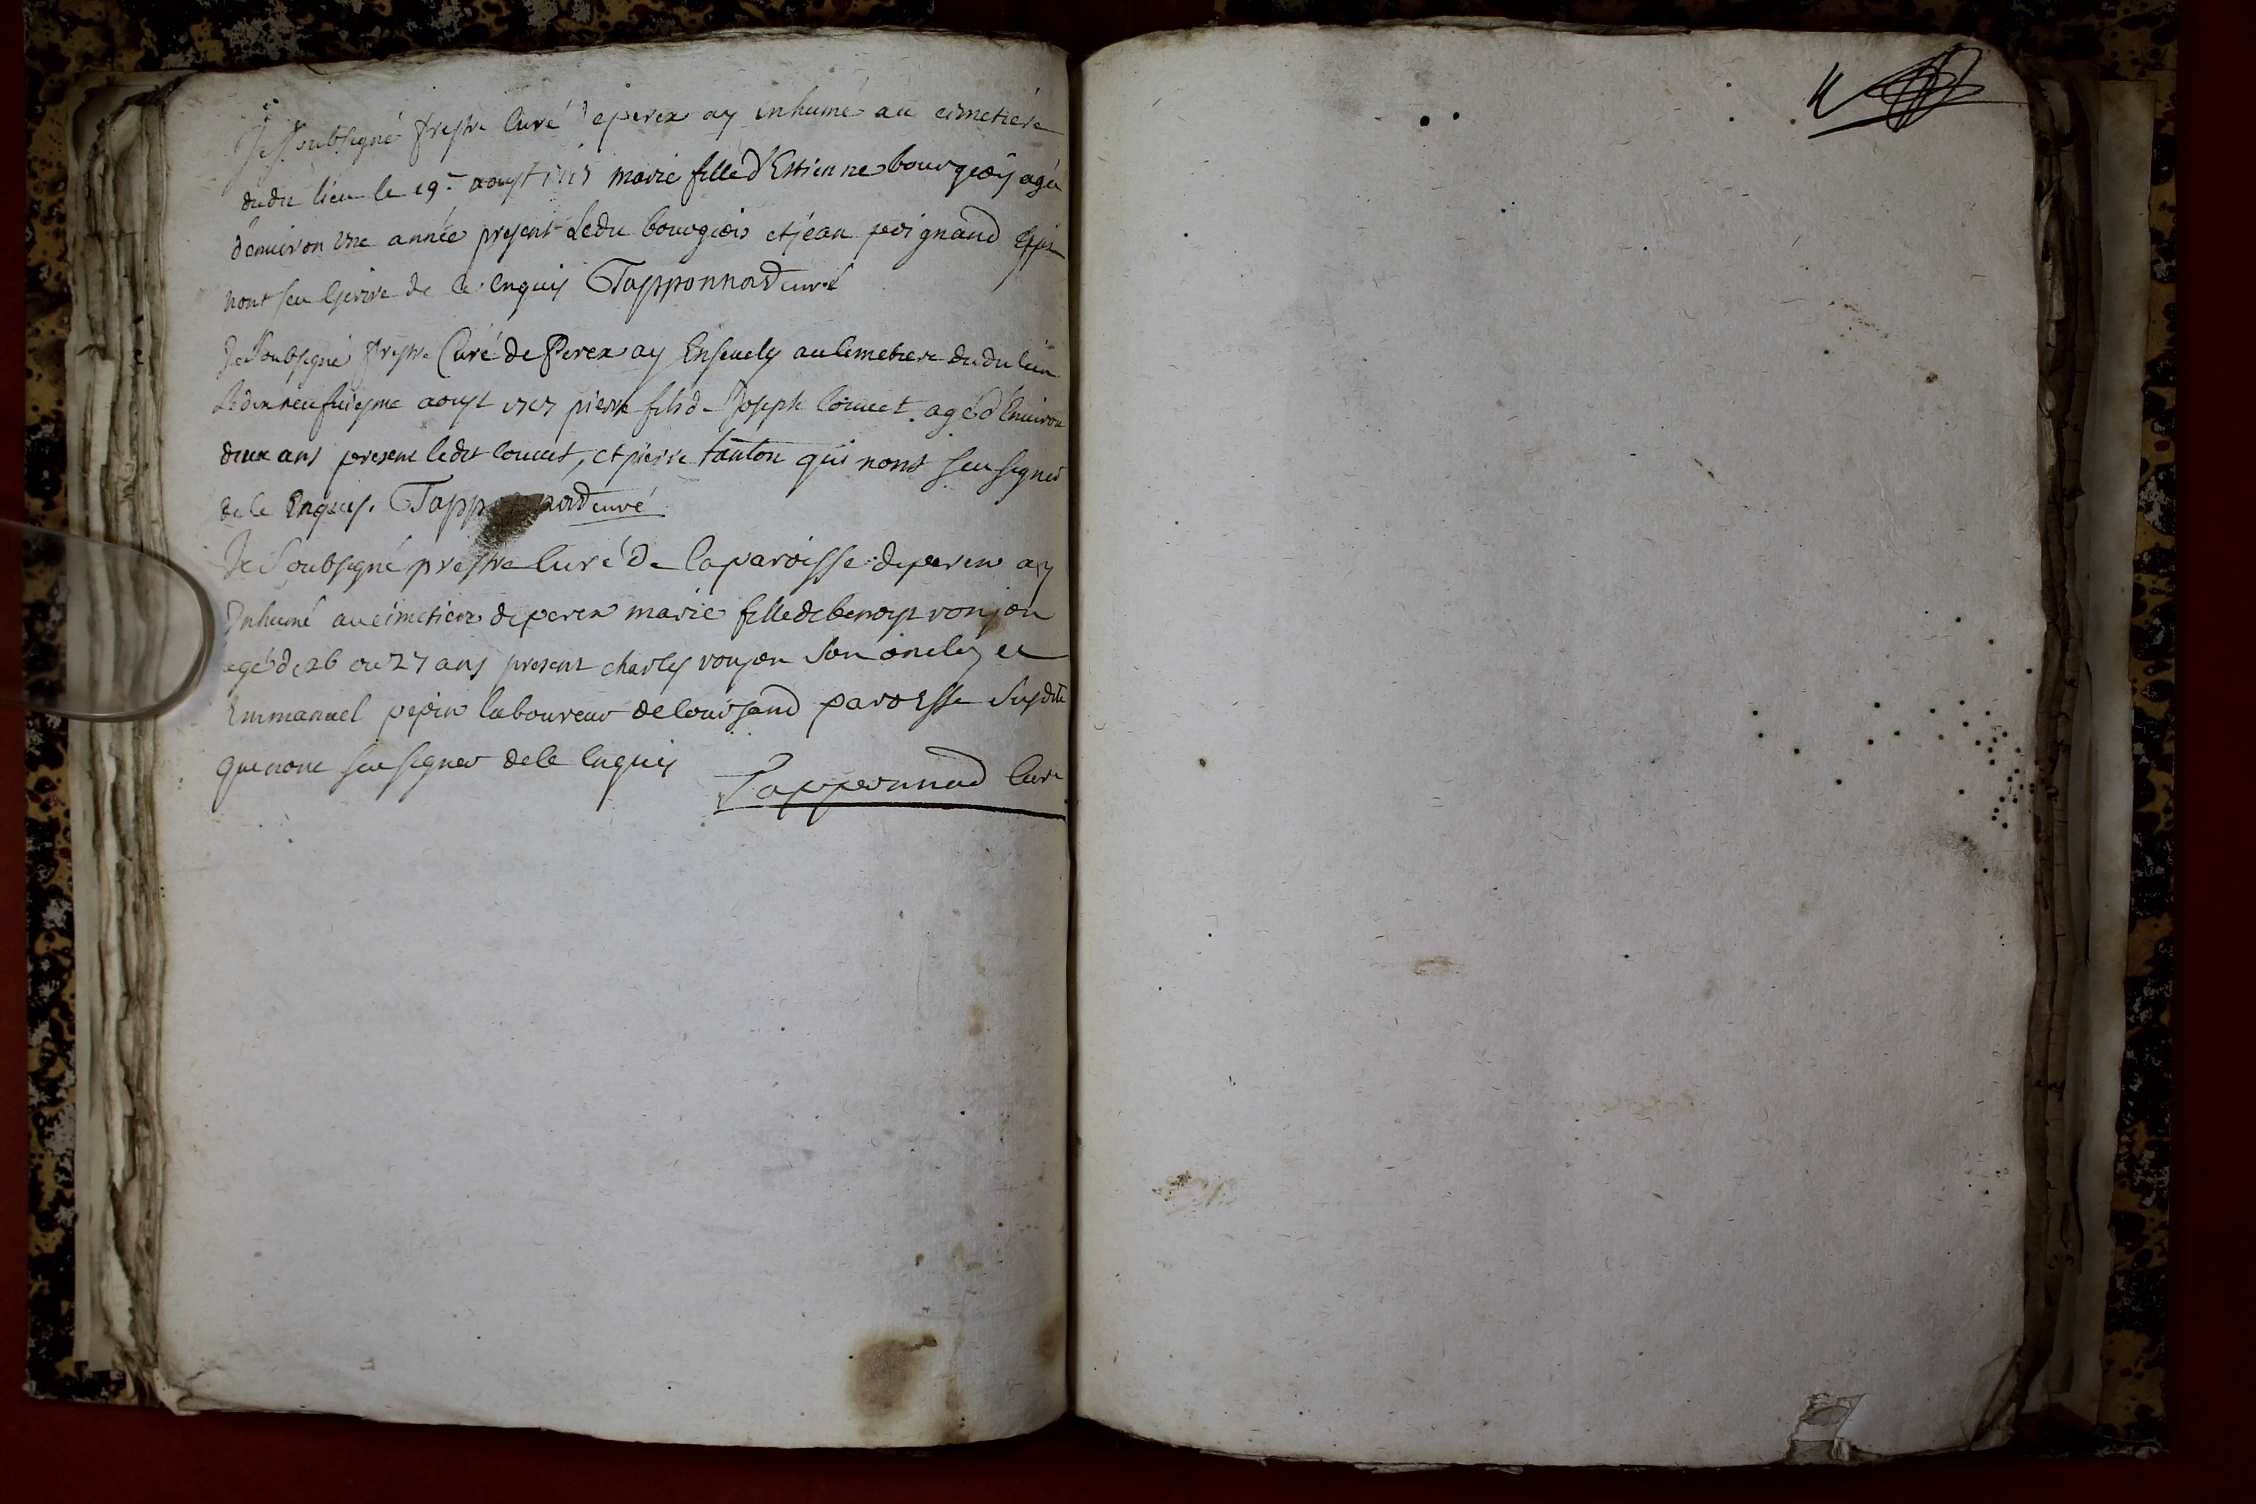 Je Soubsigné prestre Curé de perex ay inhumé au cimetiere
dudit lieu le 19e aoust marie fille d'Estienne bourgeois agée
d'environ une année present ledit bourgeois et jean perignand qui
nont seu escrire de ce enquis Tapponnad curé
Je Soubsigné prestre Curé de Perex ay Ensevely au Cemetiere dudit lieu
Le dixneufviesme aoust pierre fils de Joseph Couvet agé d'Environ
deux ans present ledit Couvet, et pierre tanton qui nont seu signer
de ce Enquis. Tapponnad curé
Je Soubsigné prestre Curé de la paroisse de perex ay
Inhumé au cimetiere de perex marie fille de benoist vonjon
agé de 26 ou 27 ans present charles vonjon son oncle, et
Emmanuel pepin laboureur de paroisse susdite
que nont seu signer de ce Enquis
Tapponnad Curé